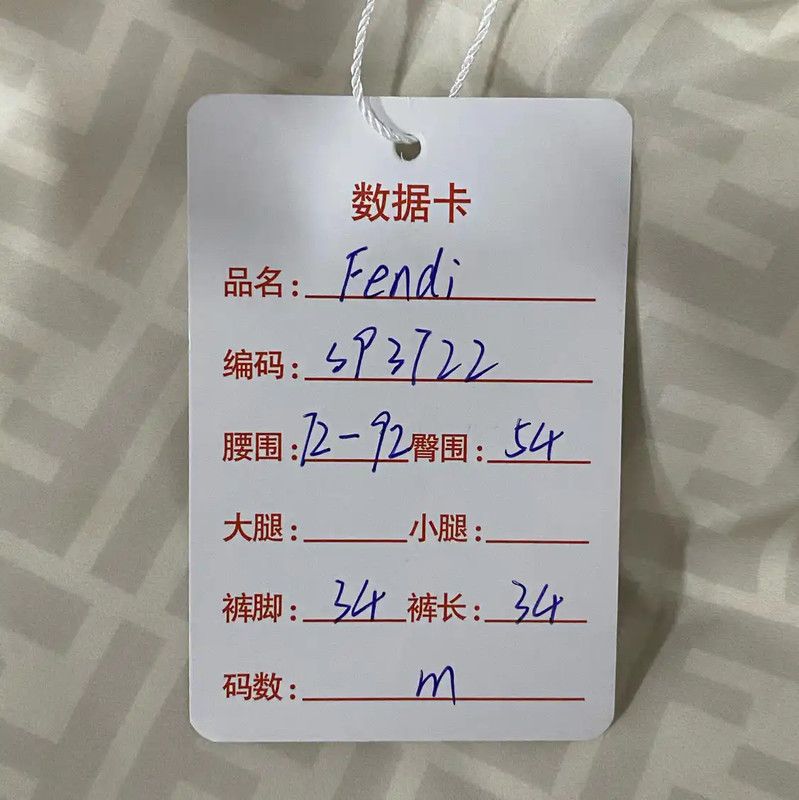 数据卡
品名: Fendi
编码: S93722
腰围: 72-92 臀围: 54
大腿: 小腿:
裤脚: 34 裤长: 34
码数: m